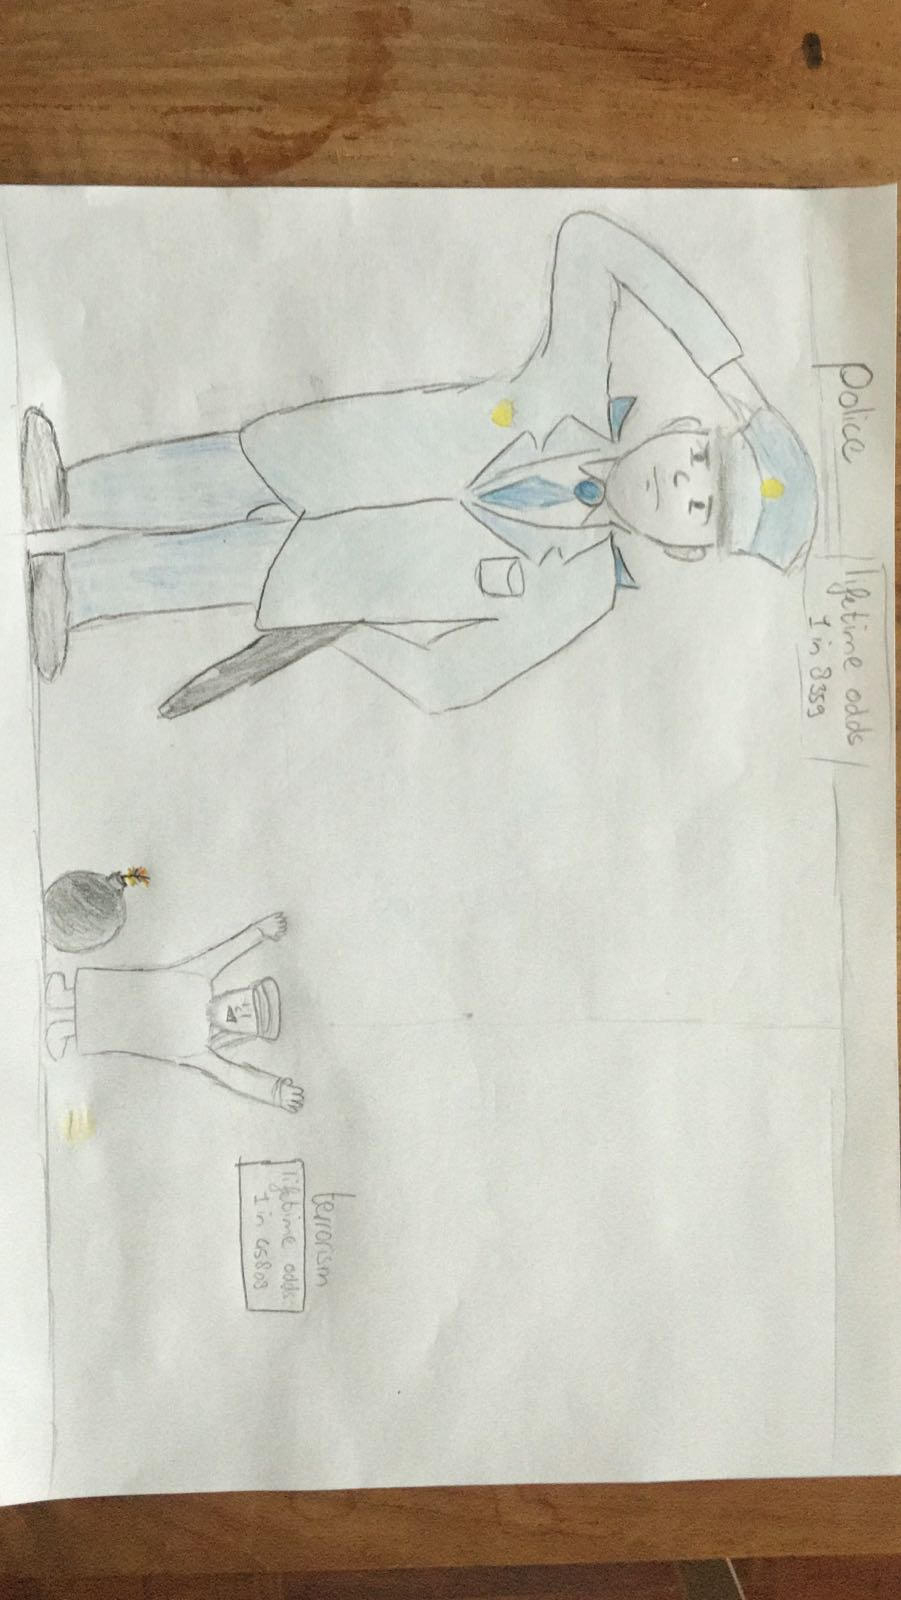 police
lifetime odds
1 in 8359
terrorism
lifetime odds
1 in 45809